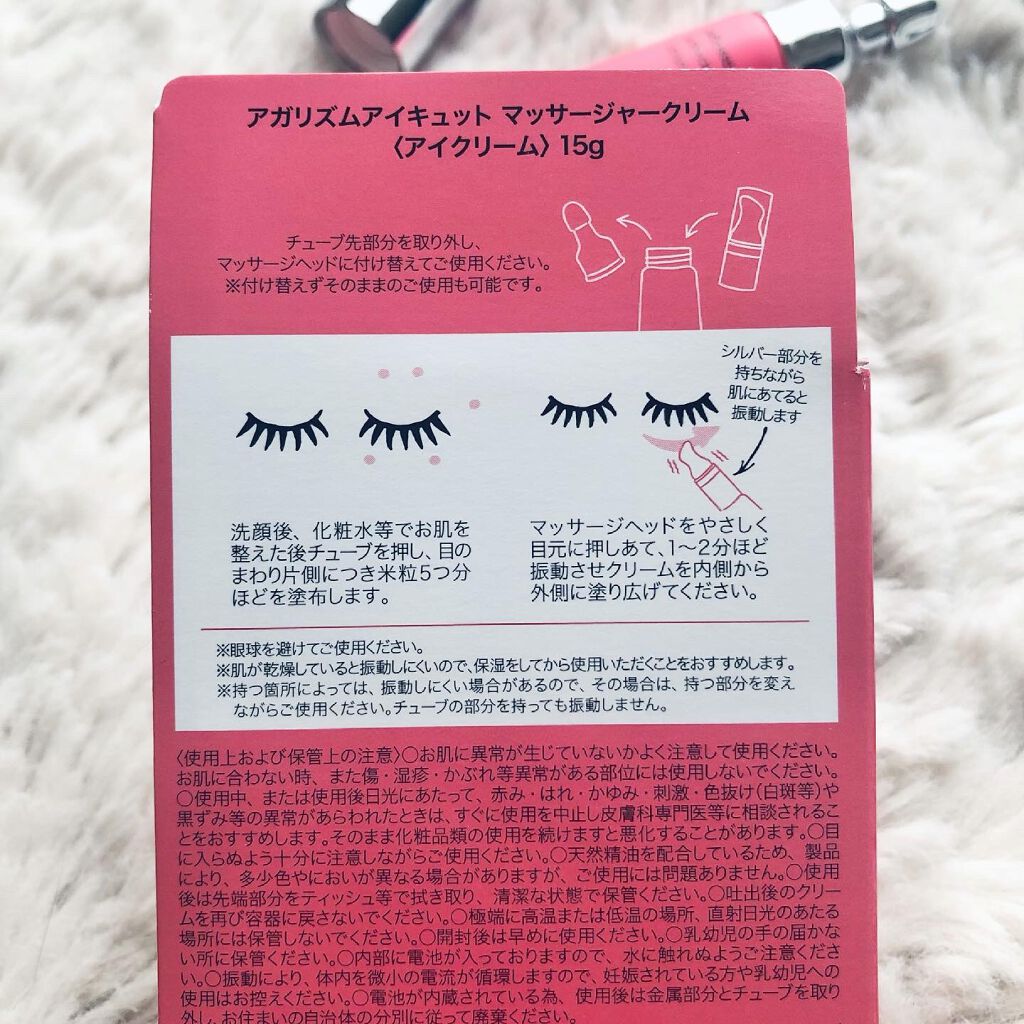 アガリズムアイキュット マッサージャークリーム
〈アイクリーム〉15g
チューブ先部分を取り外し、
マッサージヘッドに付け替えてご使用ください。
※付け替えずそのままのご使用も可能です。
シルバー部分を
持ちながら
肌にあてると
振動します
洗顔後、化粧水等でお肌を
整えた後チューブを押し、目の
まわり片側につき米粒5つ分
ほどを塗布します。
マッサージヘッドをやさしく
目元に押しあて、1〜2分ほど
振動させクリームを内側から
外側に塗り広げてください。
※眼球を避けてご使用ください。
※肌が乾燥していると振動しにくいので、保湿をしてから使用いただくことをおすすめします。
※持つ箇所によっては、振動しにくい場合があるので、その場合は、持つ部分を変え
ながらご使用ください。チューブの部分を持っても振動しません。
〈使用上および保管上の注意〉○お肌に異常が生じていないかよく注意して使用ください。
お肌に合わない時、また傷・湿疹・かぶれ等異常がある部位には使用しないでください。
○使用中、または使用後日光にあたって、赤み・はれ・かゆみ・刺激・色抜け(白斑等)や
黒ずみ等の異常があらわれたときは、すぐに使用を中止し皮膚科専門医等に相談されるこ
とをおすすめします。そのまま化粧品類の使用を続けますと悪化することがあります。○目
に入らぬよう十分に注意しながらご使用ください。○天然精油を配合しているため、製品
により、多少色やにおいが異なる場合がありますが、ご使用には問題ありません。○使用
後は先端部分をティッシュ等で拭き取り、清潔な状態で保管ください。○吐出後のクリー
ムを再び容器に戻さないでください。○極端に高温または低温の場所、直射日光のあたる
場所には保管しないでください。○開封後は早めに使用ください。○乳幼児の手の届かな
い所に保管ください。○内部に電池が入っておりますので、水に触れぬようご注意くださ
い。○振動により、体内を微小の電流が循環しますので、妊娠されている方や乳幼児への
使用はお控えください。○電池が内蔵されている為、使用後は金属部分とチューブを取り
外し、お住まいの自治体の分別に従って廃棄ください。